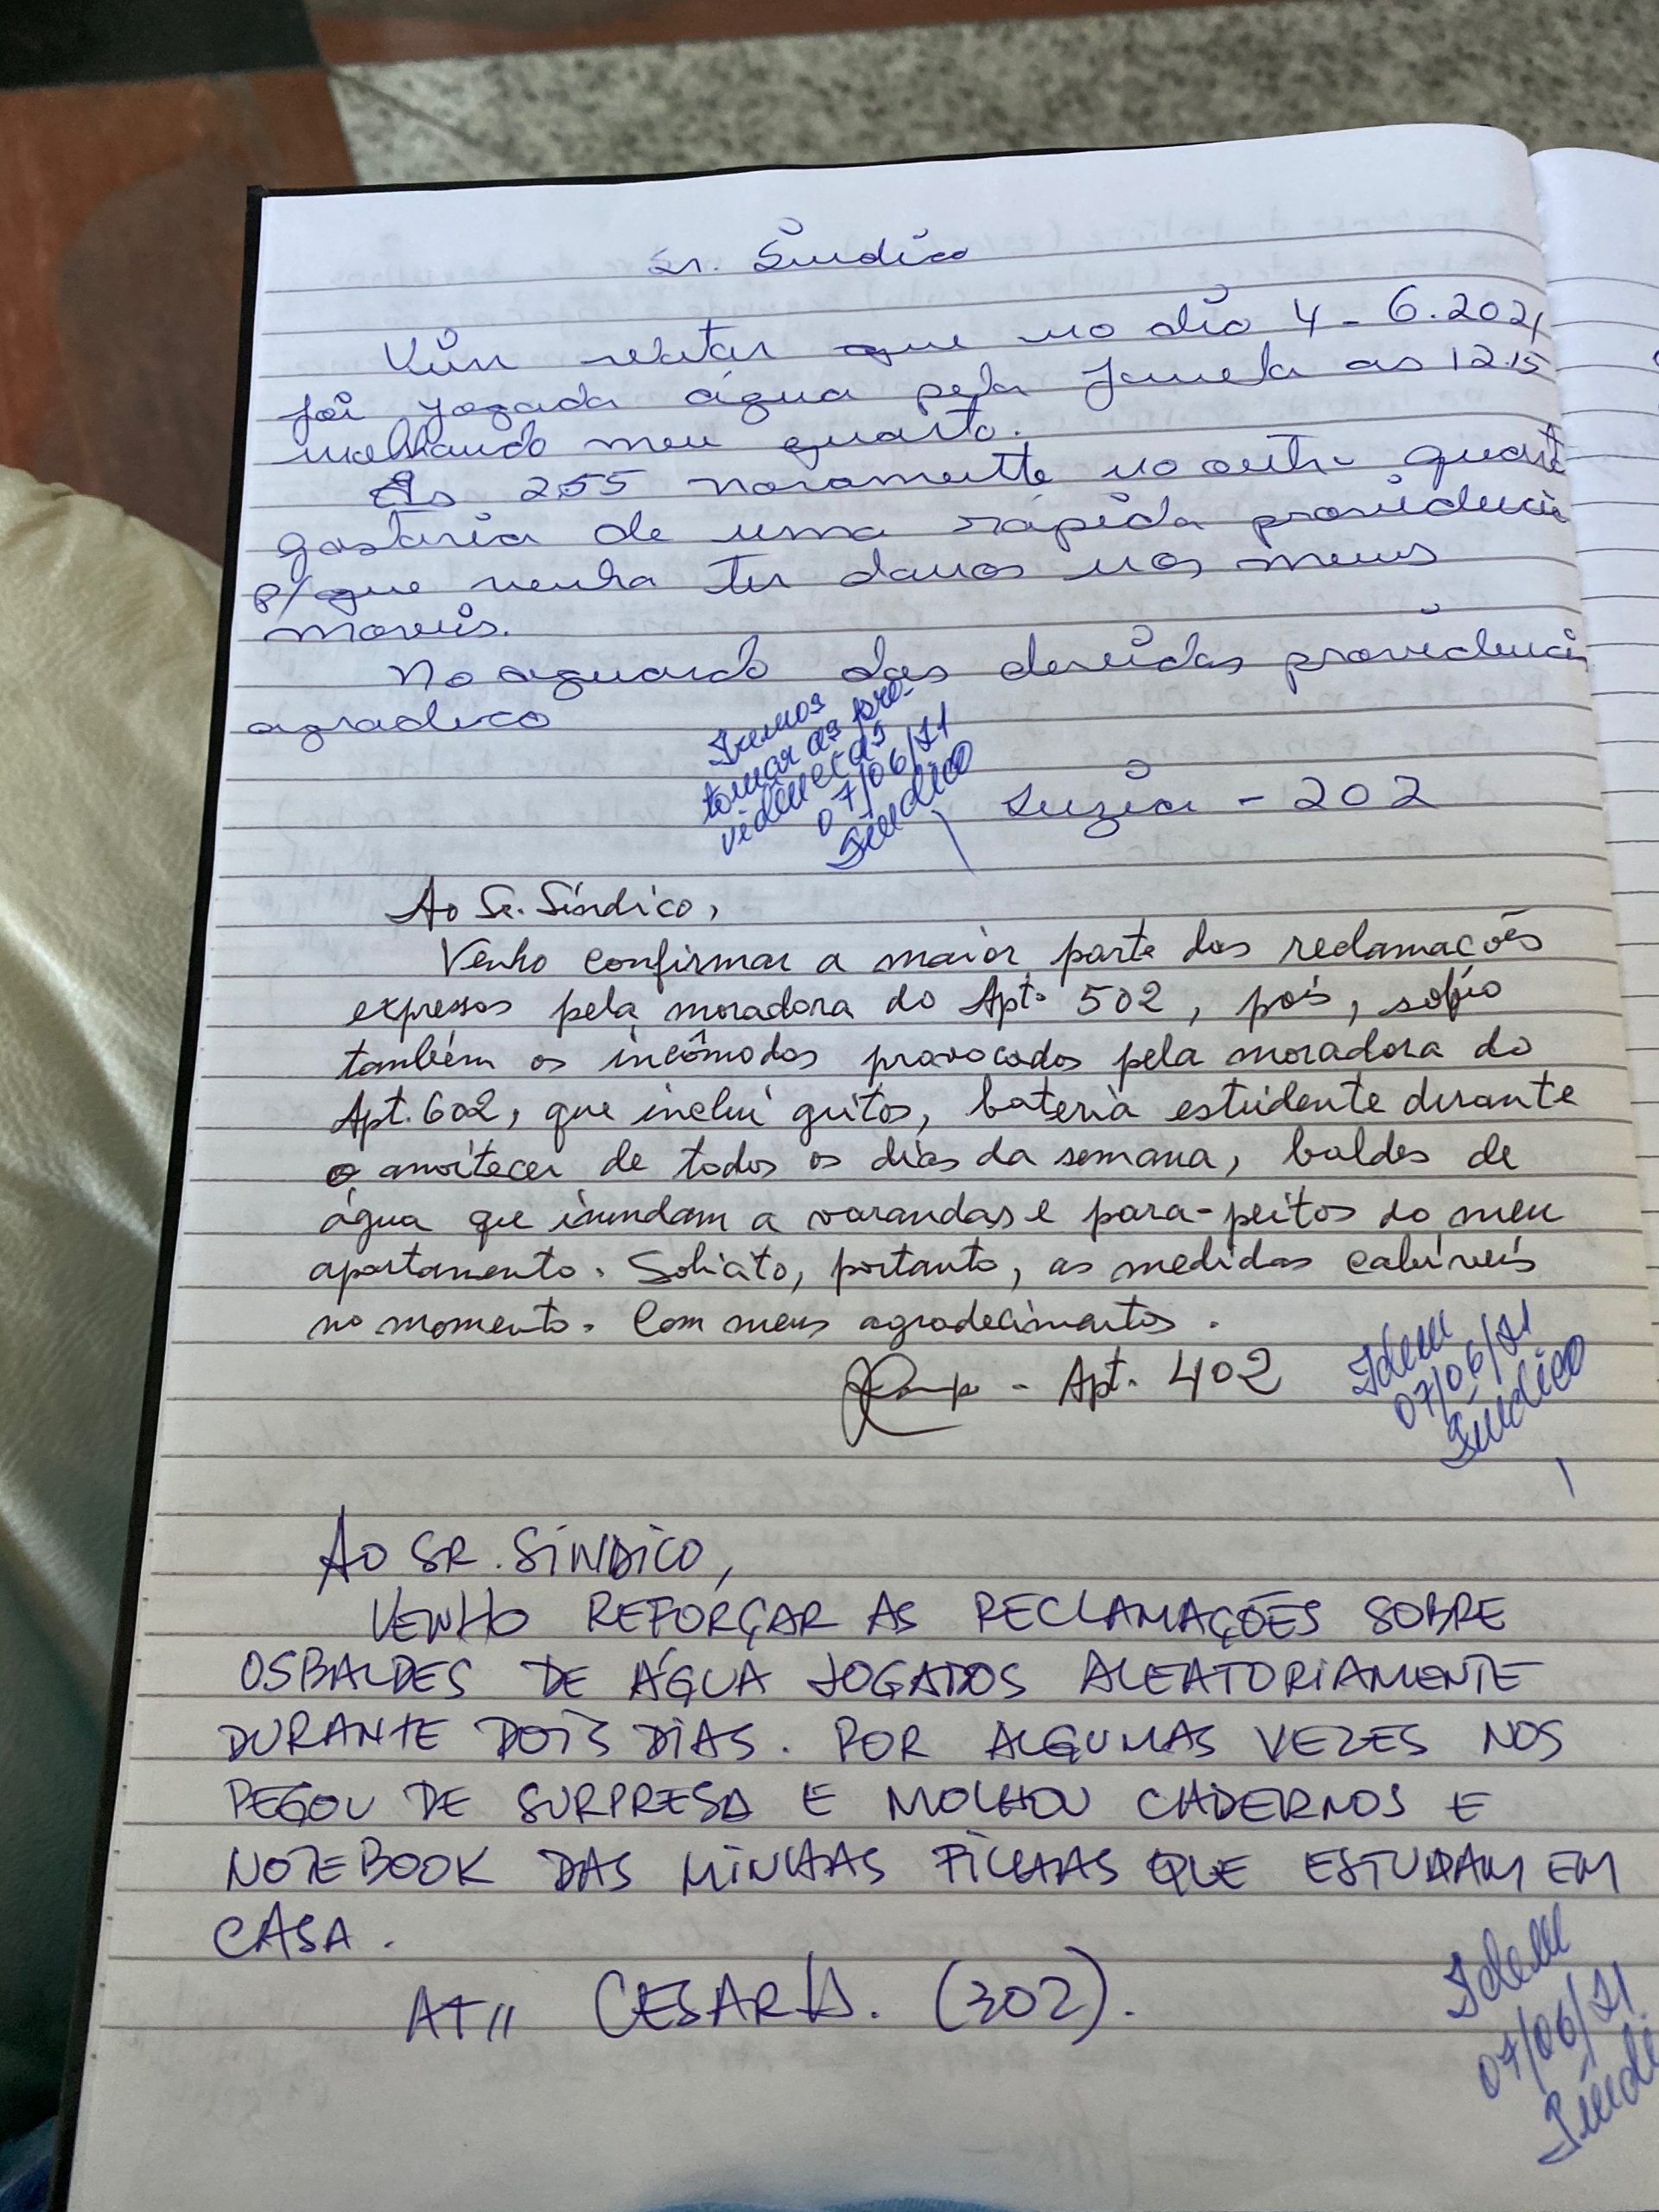 Sr. Síndico
Vim relatar que no dia 4-6.2021
foi jogada água pela janela as 12.15
molhando meu quarto.
As 255 novamente no outro quart
gostaria de uma rápida providência
p/ que venha ter danos nos meus
moveis.
No aguardo das devidas providenci
agradeco
Iremos
tomar as pro-
videncias
07/06/21
Síndico
Luzia - 202
Ao Sr. Síndico,
Venho confirmar a maior parte das reclamações
expressas pela moradora do Apt. 502, pois, sofro
também os incômodos provocados pela moradora do
Apt. 602, que inclui gritos, bateria estridente durante
o anoitecer de todos os dias da semana, baldes de
água que inundam a varandas e para-peitos do meu
apartamento. Solicito, portanto, as medidas cabíveis
no momento. Com meus agradecimentos.
- Apt. 402
Idem
07/06/21
Síndico
AO SR. SÍNDICO,
VENHO REFORÇAR AS RECLAMAÇÕES SOBRE
OS BALDES DE ÁGUA JOGADOS ALEATORIAMENTE
DURANTE DOIS DIAS. POR ALGUMAS VEZES NOS
PEGOU DE SURPRESA E MOLHOU CADERNOS E
NOTEBOOK DAS MINHAS FILHAS QUE ESTUDAM EM
CASA.
ATII CESAR A. (302).
Idem
07/06/21
Síndi